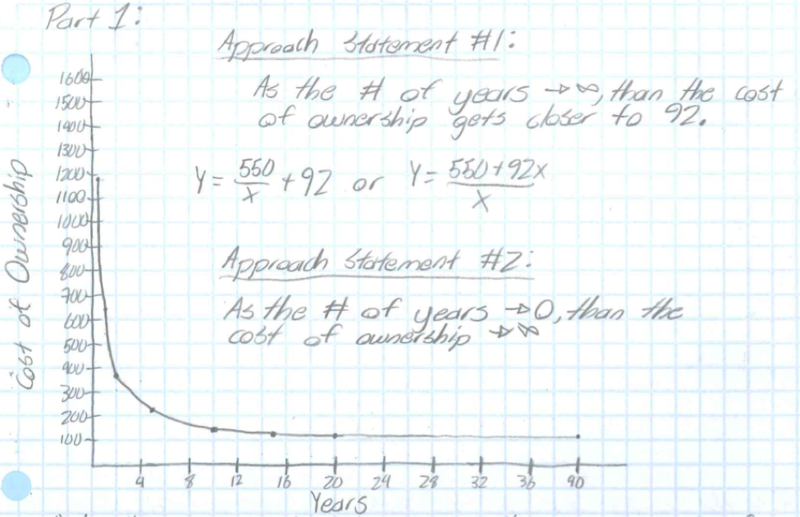 Part 1:
Approach Statement #1:
As the # of years → ∞, than the cost
of ownership gets closer to 92.
Y = 550/x + 92 or Y = 550+92x/x
Approach Statement #2:
As the # of years → 0, than the
cost of ownership → ∞
Cost of Ownership
1600
1500
1400
1300
1200
1100
1000
900
800
700
600
500
400
300
200
100
4 8 12 16 20 24 28 32 36 40
Years